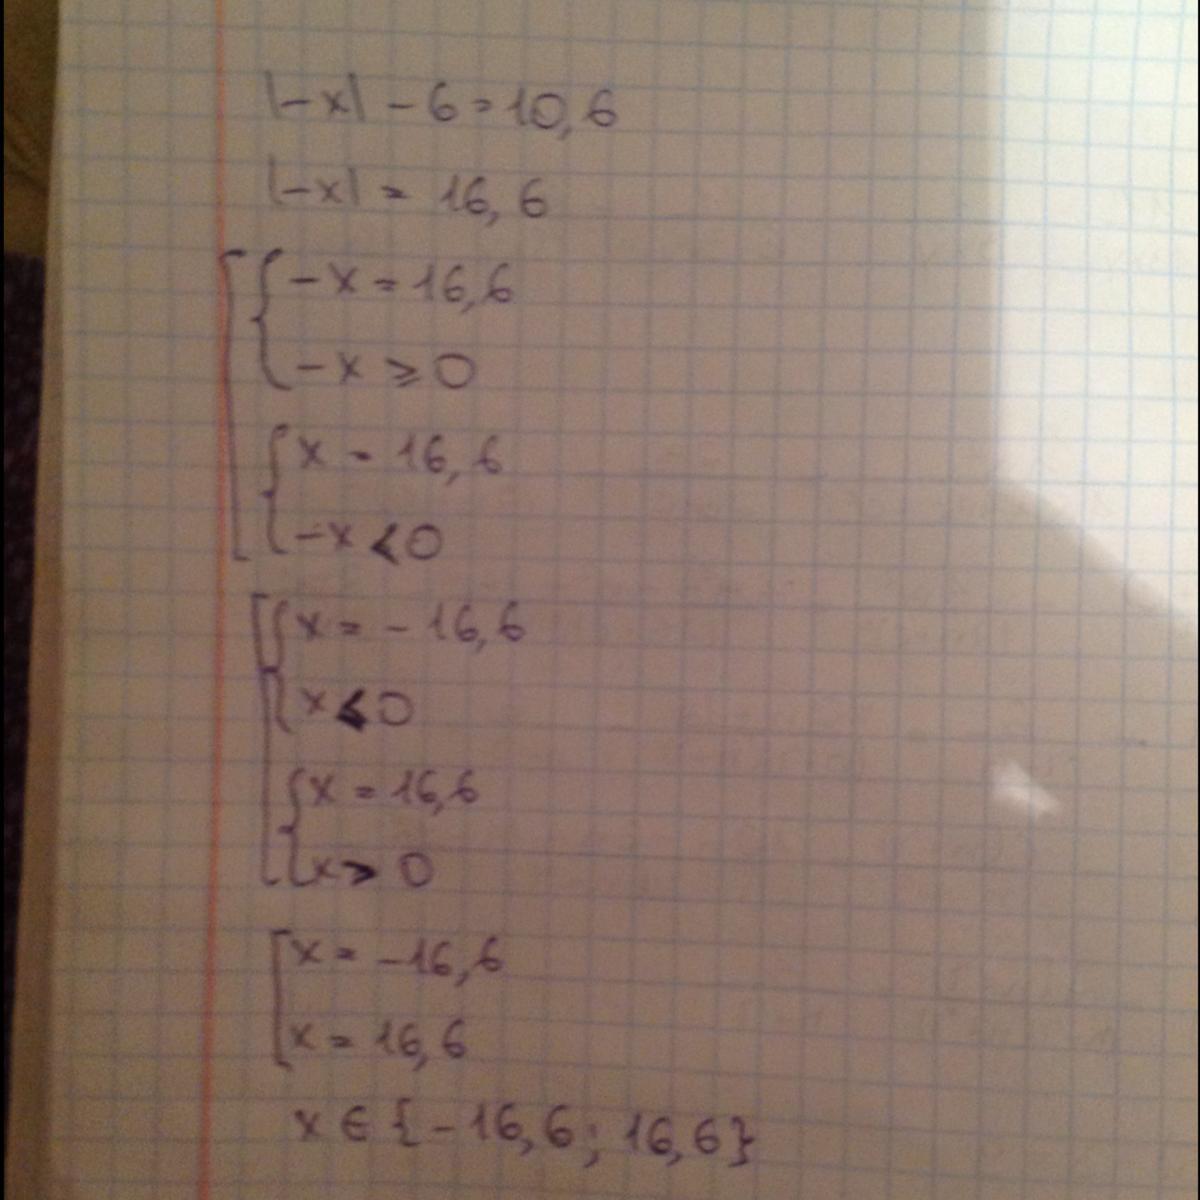 |-x| - 6 = 10,6
|-x| = 16,6
[ { -x = 16,6
-x ⩾ 0
{ x = 16,6
-x < 0
[ { x = - 16,6
x ⩽ 0
{ x = 16,6
x > 0
[ x = -16,6
x = 16,6
x ∈ {-16,6; 16,6}